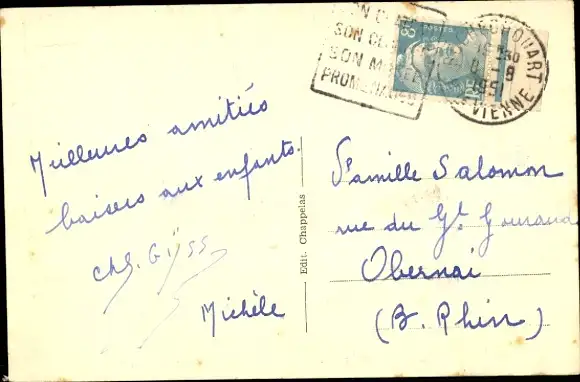 Meilleures amitiés
baisers aux enfants.
Chs. Gÿss
Michèle
Edit. Chappelas
SON
SON
SON
PROMENADES
POSTES
ROCHECHOUART
1951
VIENNE
Famille Salomon
rue du Gl. Gouraud
Obernai
(B. Rhin)